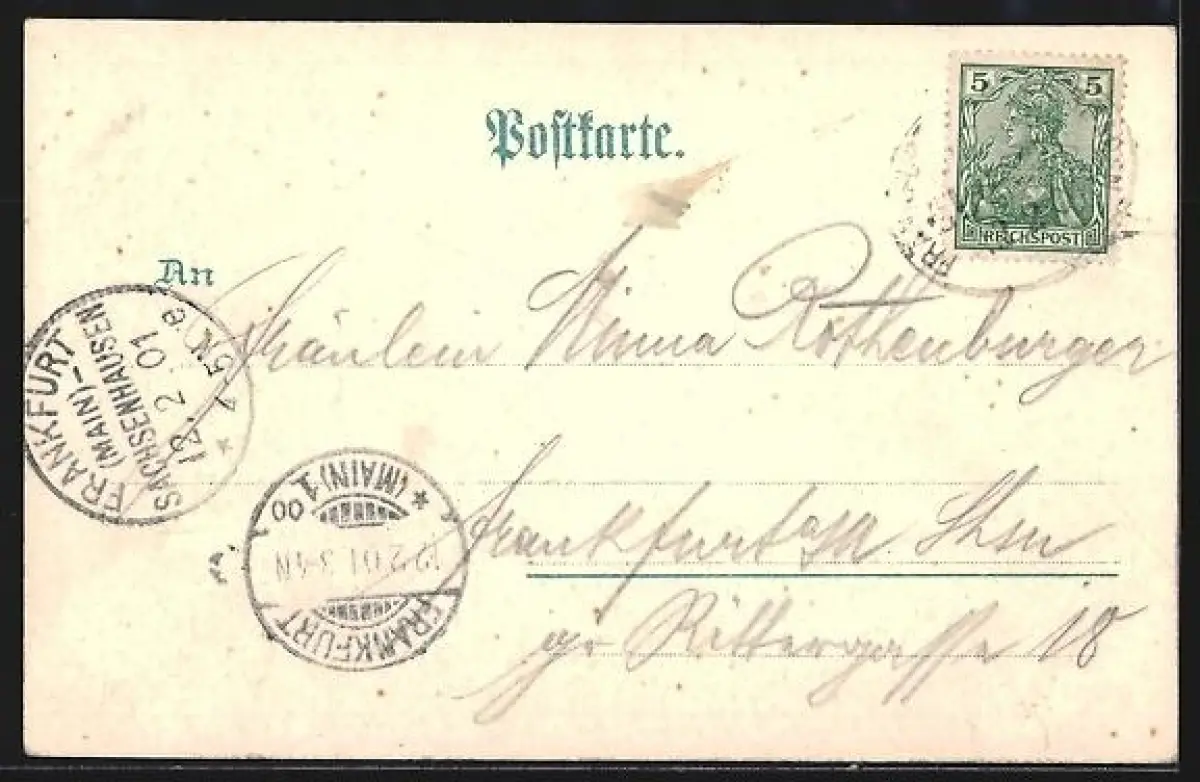 5 5
REICHSPOST
Postkarte.
An
Fräulein Minna Rothenburger
Frankfurt a/M. Shsn
gr Rittergasse 18
FRANKFURT
(MAIN)–
SACHSENHAUSEN
12. 2. 01
4-5N. e
*
* (MAIN) 1
00
12.2.01.3-4N
FRANKFURT